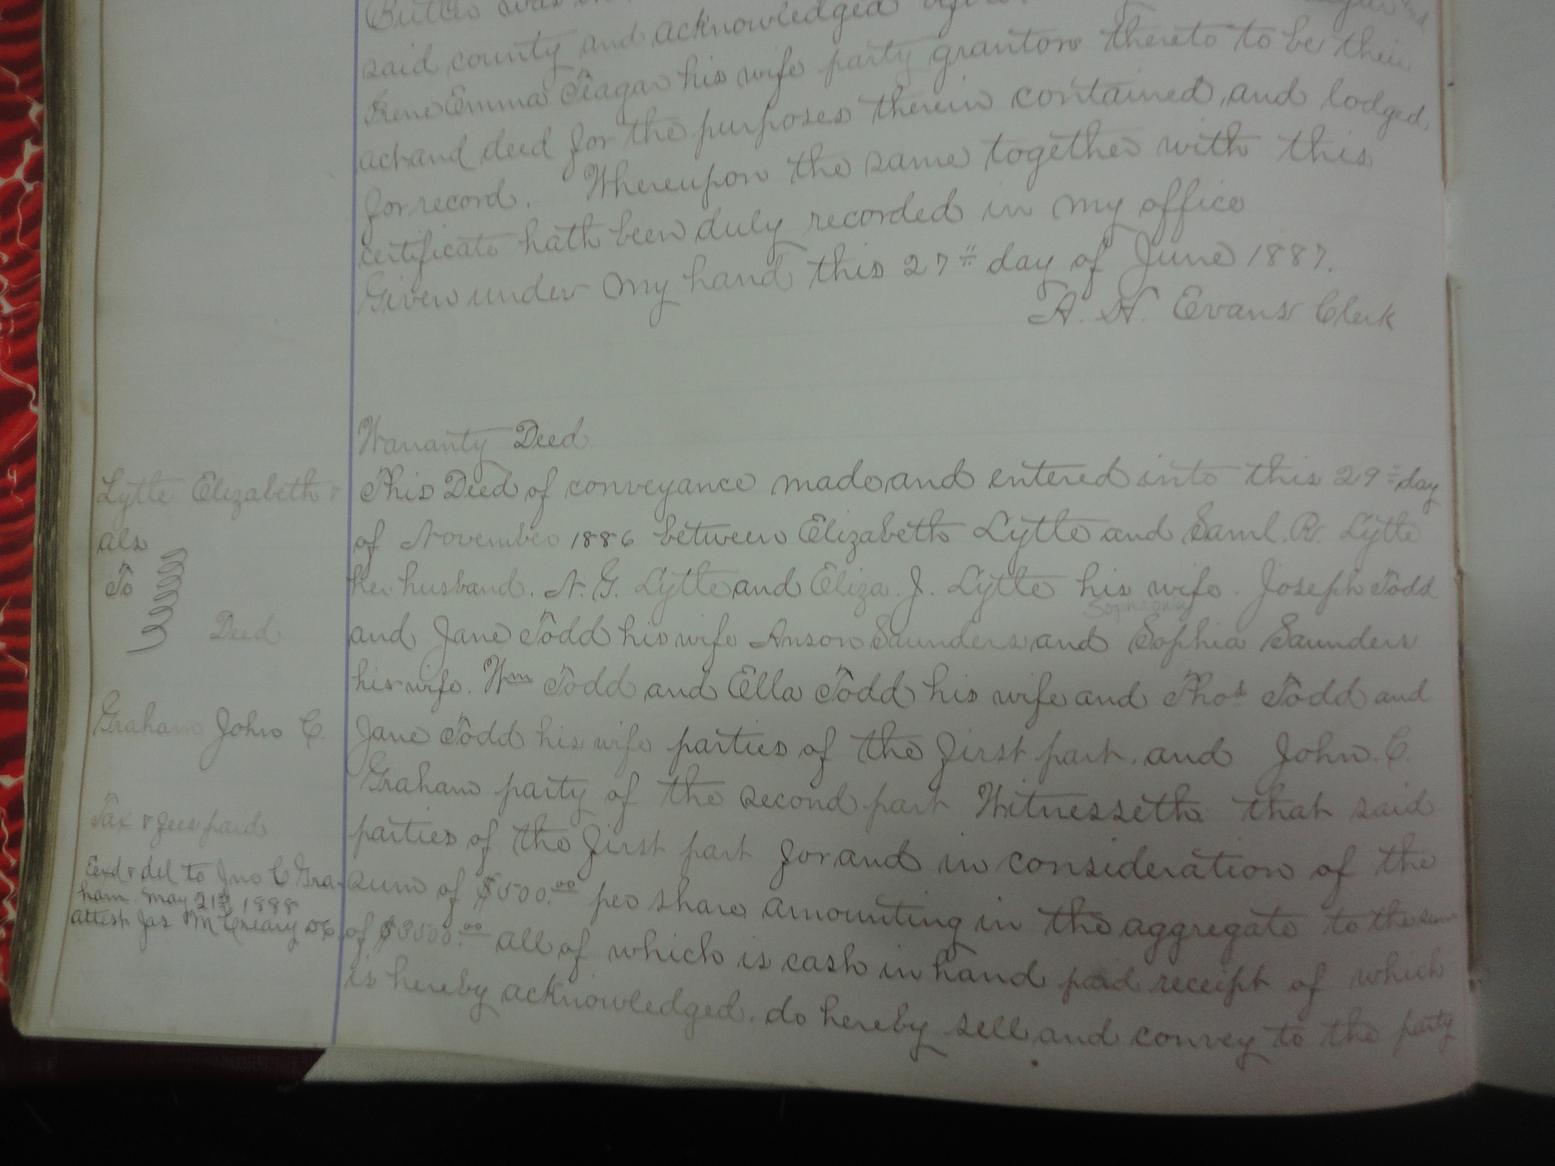 said county and acknowledged
Irene Emma Teagar his wife party grantors thereto to be their
act and deed for the purposes therein contained, and lodged
for record. Whereupon the same together with this
certificate hath been duly recorded in my office
Given under my hand this 27th day of June 1887.
A. H. Evans Clerk
Warranty Deed
Lytle Elizabeth &
als
To
Deed
Graham John C.
Tax & fees paid
Exd & del to Jno C Gra-
ham. May 21st 1888
attest Jas McCreary DC
This Deed of conveyance made and entered into this 29th day
of November 1886 between Elizabeth Lytle and Saml. R. Lytle
her husband. A. G. Lytle and Eliza. J. Lytle his wife. Joseph Todd
and Jane Todd his wife Anson Saunders and Sophia Saunders
his wife. Wm Todd and Ella Todd his wife and Thos Todd and
Jane Todd his wife parties of the first part, and John. C.
Graham party of the second part Witnesseth that said
parties of the first part for and in consideration of the
sum of $500.00 per share amounting in the aggregate to the sum
of $3500.00 all of which is cash in hand paid receipt of which
is hereby acknowledged. do hereby sell and convey to the party